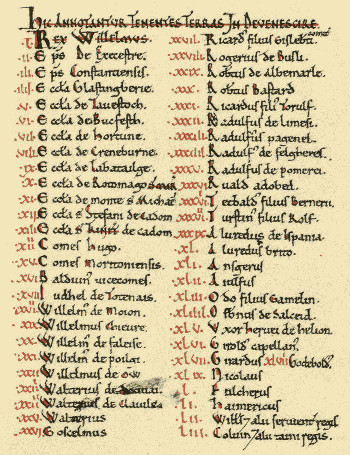 HIC ANNOTANTVR TENENTES TERRAS IN DEVENESCIRE.
.I. REX Willelmus.
.II. Eps De Execestre.
.III. Eps Constantiensis.
.IIII. Eccła Glastingberie.
.V. Eccła de Tauestoch.
.VI. Eccła de Bucfesth.
.VII. Eccła de hortune.
.VIII. Eccła de Creneburne.
.IX. Eccła de Labatailge.
.X. Eccła de Rotomago S marie
.XI. Eccła de monte S Michaet
.XII. Eccła S Stefani de Cadom
.XIII. Eccła S de cadom.
.XIIII. Comes hugo.
.XV. Comes moritoniensis.
.XVI. Balduin uicecomes.
.XVII. Iudhel de Totenais.
.XVIII. Willelm de moion.
.XIX. Willelmus chieure.
.XX. Willelm de faleise.
.XXI. Willelm de poilgi.
.XXII. Willelmus de ow
.XXIII. Walterius de Douuai.
.XXIIII. Walterius de Clauile.
.XXV. Walterius
.XXVI. Goscelmus.
.XXVII. Ricard filius Gisleb comit
.XXVIII. Rogerius de Busli.
.XXIX. Robtus de Albemarle.
.XXX. Robtus Bastard
.XXXI. Ricardus filius Torulf.
.XXXII. Radulfus de limesi.
.XXXIII. Radulfus pagenel.
.XXXIIII. Radulf de felgheres.
.XXXV. Radulfus de pomerei.
.XXXVI. Ruald adobed.
.XXXVII. Tetbald filius Bernerii.
.XXXVIII. Turstin filius Rolf.
.XXXIX. Aluredus de Ispania.
.XL. Aluredus brito.
.XLI. Ansgerus
.XLII. Aiulfus
.XLIII. Odo filius Gamelin.
.XLIIII. Osbnus de Salceid.
.XLV. Vxor heruei de helion.
.XLVI. Girold capellan.
.XLVII. Girardus XLVIII Godebold.
.XLIX. Nicolaus
.L. Fulcherus
.LI. haimericus
.LII. Willł 7 alii seruient regis.
.LIII. Coluin 7 alii taini regis.